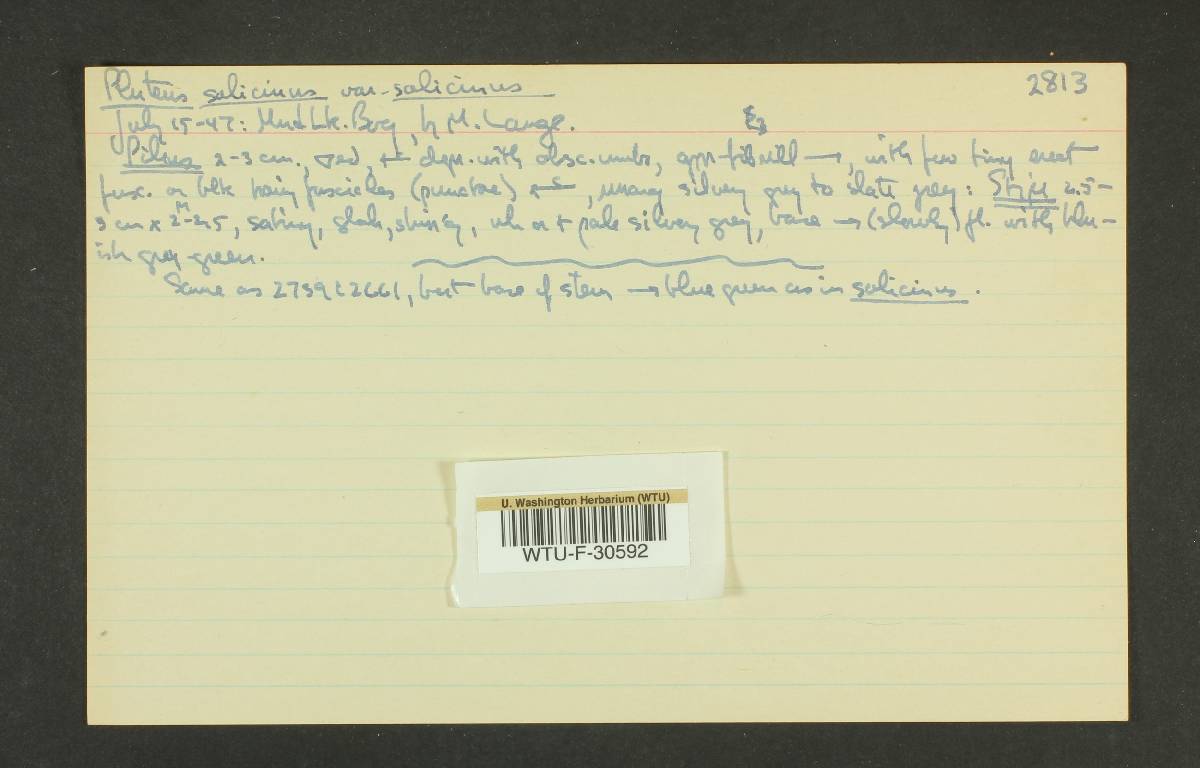 Pluteus salicinus var. salicinus 2813
July 15-47: Mud Lk. Bog, by M. Lange.
Pileus 2-3 cm., depr. with obsc. umbo, appr-fibrill →, with few tiny erect
fusc. or blk hairy fascicles (punctae), silvery grey to slate grey: Stipe 2.5-
3 cm x 2-2.5, satiny, shiny, wh or ± pale silvery grey, base → (slowly) fl. with blu-
ish grey-green.
Same as 2759 & 2661, but base of stem → blue green as in salicinus.
U. Washington Herbarium (WTU)
WTU-F-30592